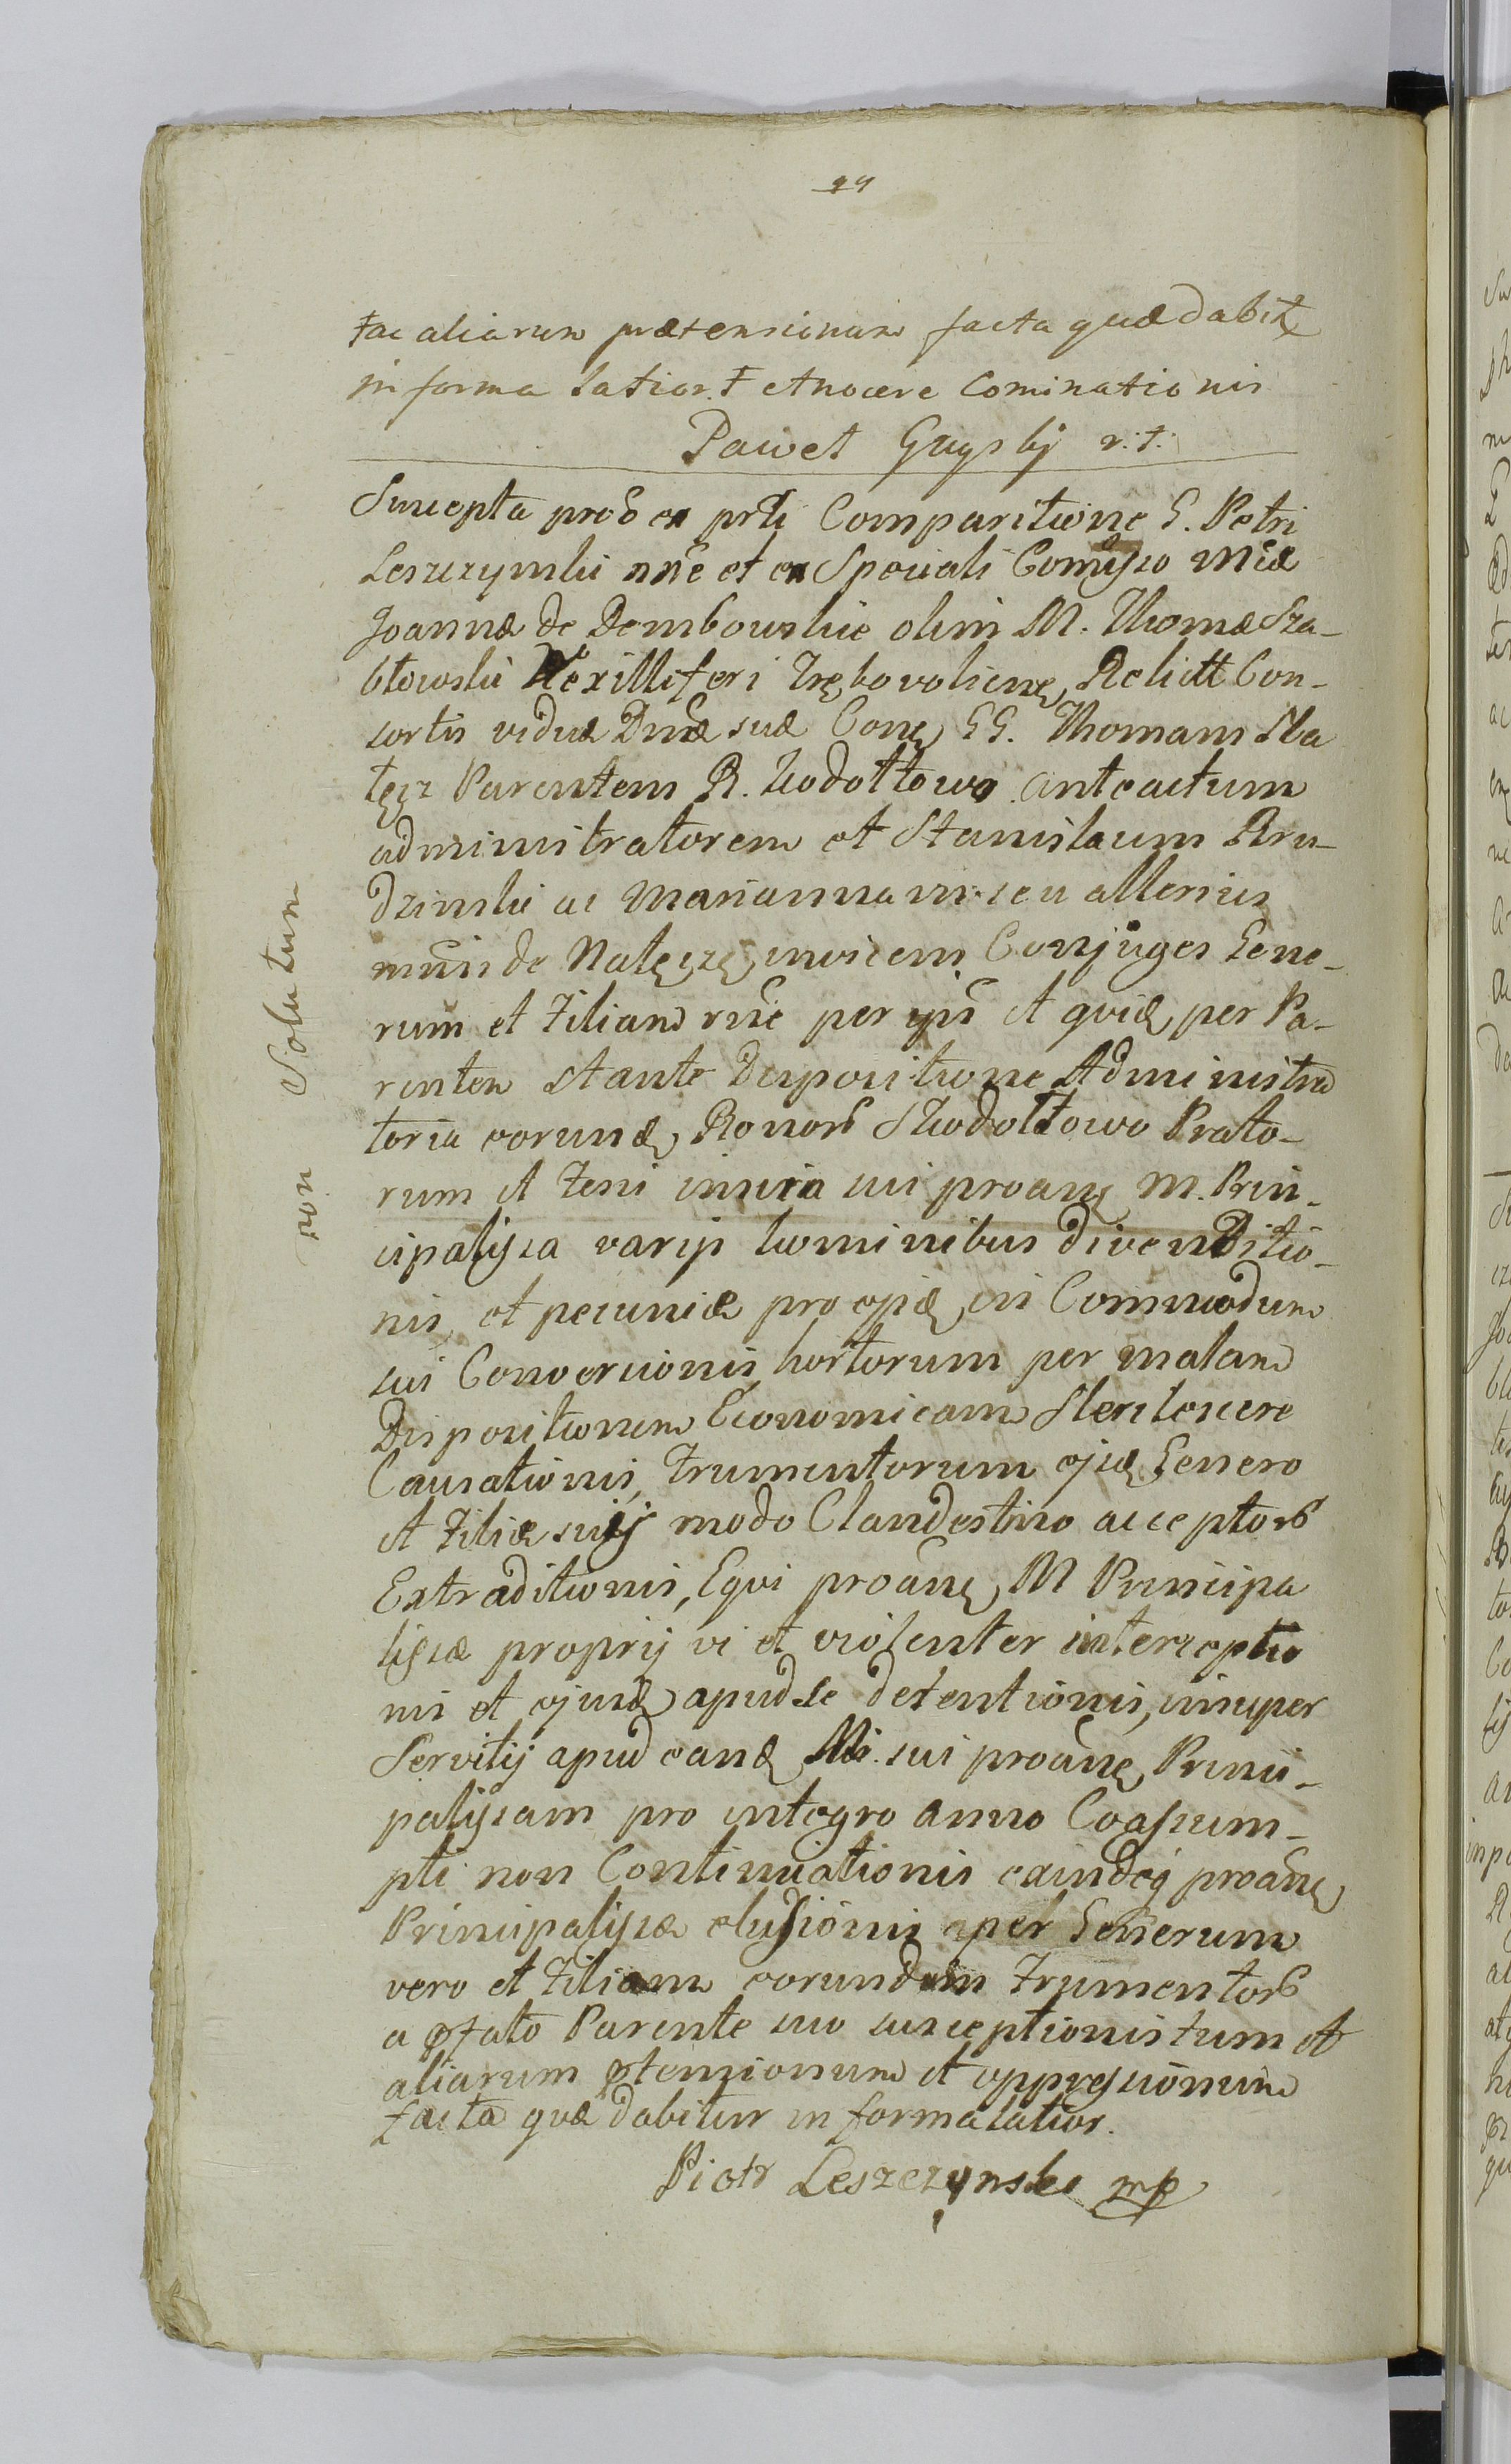 29
ac aliarum prætensionum facta quæ dabit
in forma latior. et nocere Cominationis
Paweł
Suscepta ex prti Comparitione G. Petri
Leszczynski nne et ex Speciali Comisso Mcæ
Joannæ de Dembowskie olim M. Thomæ Sza-
błowski Vexilliferi Trębovoliens, Relictt Con-
sortis viduæ Dnæ suæ Cone GG. Thomam Na
łęcz Parentem B. Szodołtowo anteactum
administratorem et Stanislaum Bru-
dzinski ac Mariannam seu allerius
nnis de Nałęcze invicem Conjuges Gene-
rum et Filiam rne per ipm et quid per Pa-
rentem stante Dispositione Administra
toria eorund Bonorb Szodołtowo Prato-
rum et Feni inscia sui proane M. Prin-
cipalissa varijs hominibus divenditio-
nis, et pecuniæ pro in Commodum
sui Conversionis, hortorum per malam
Dispositionem Economicam Sterilescere
Causationis, Frumentorum ejsd Genero
et Filiæ suij modo Clandestino acceptorb
Extraditionis, Equi proane M Principa
lissæ proprij vi et violenter interceptio
nis et ejusd apud se detentionis, insuper
Servitij apud eand M. sui proane Princi-
palissam pro integro anno Coassum-
pti non Continuationis eamdeq proane
Principalissæ elusionis per Generum
vero et Filiam eorundem Frumentorb
a pfato Parente suo susceptionis tum et
aliarum ptensionum et oppressionum
facta quæ dabitur in forma latior.
Piotr Leszczynski mp
non Solutum